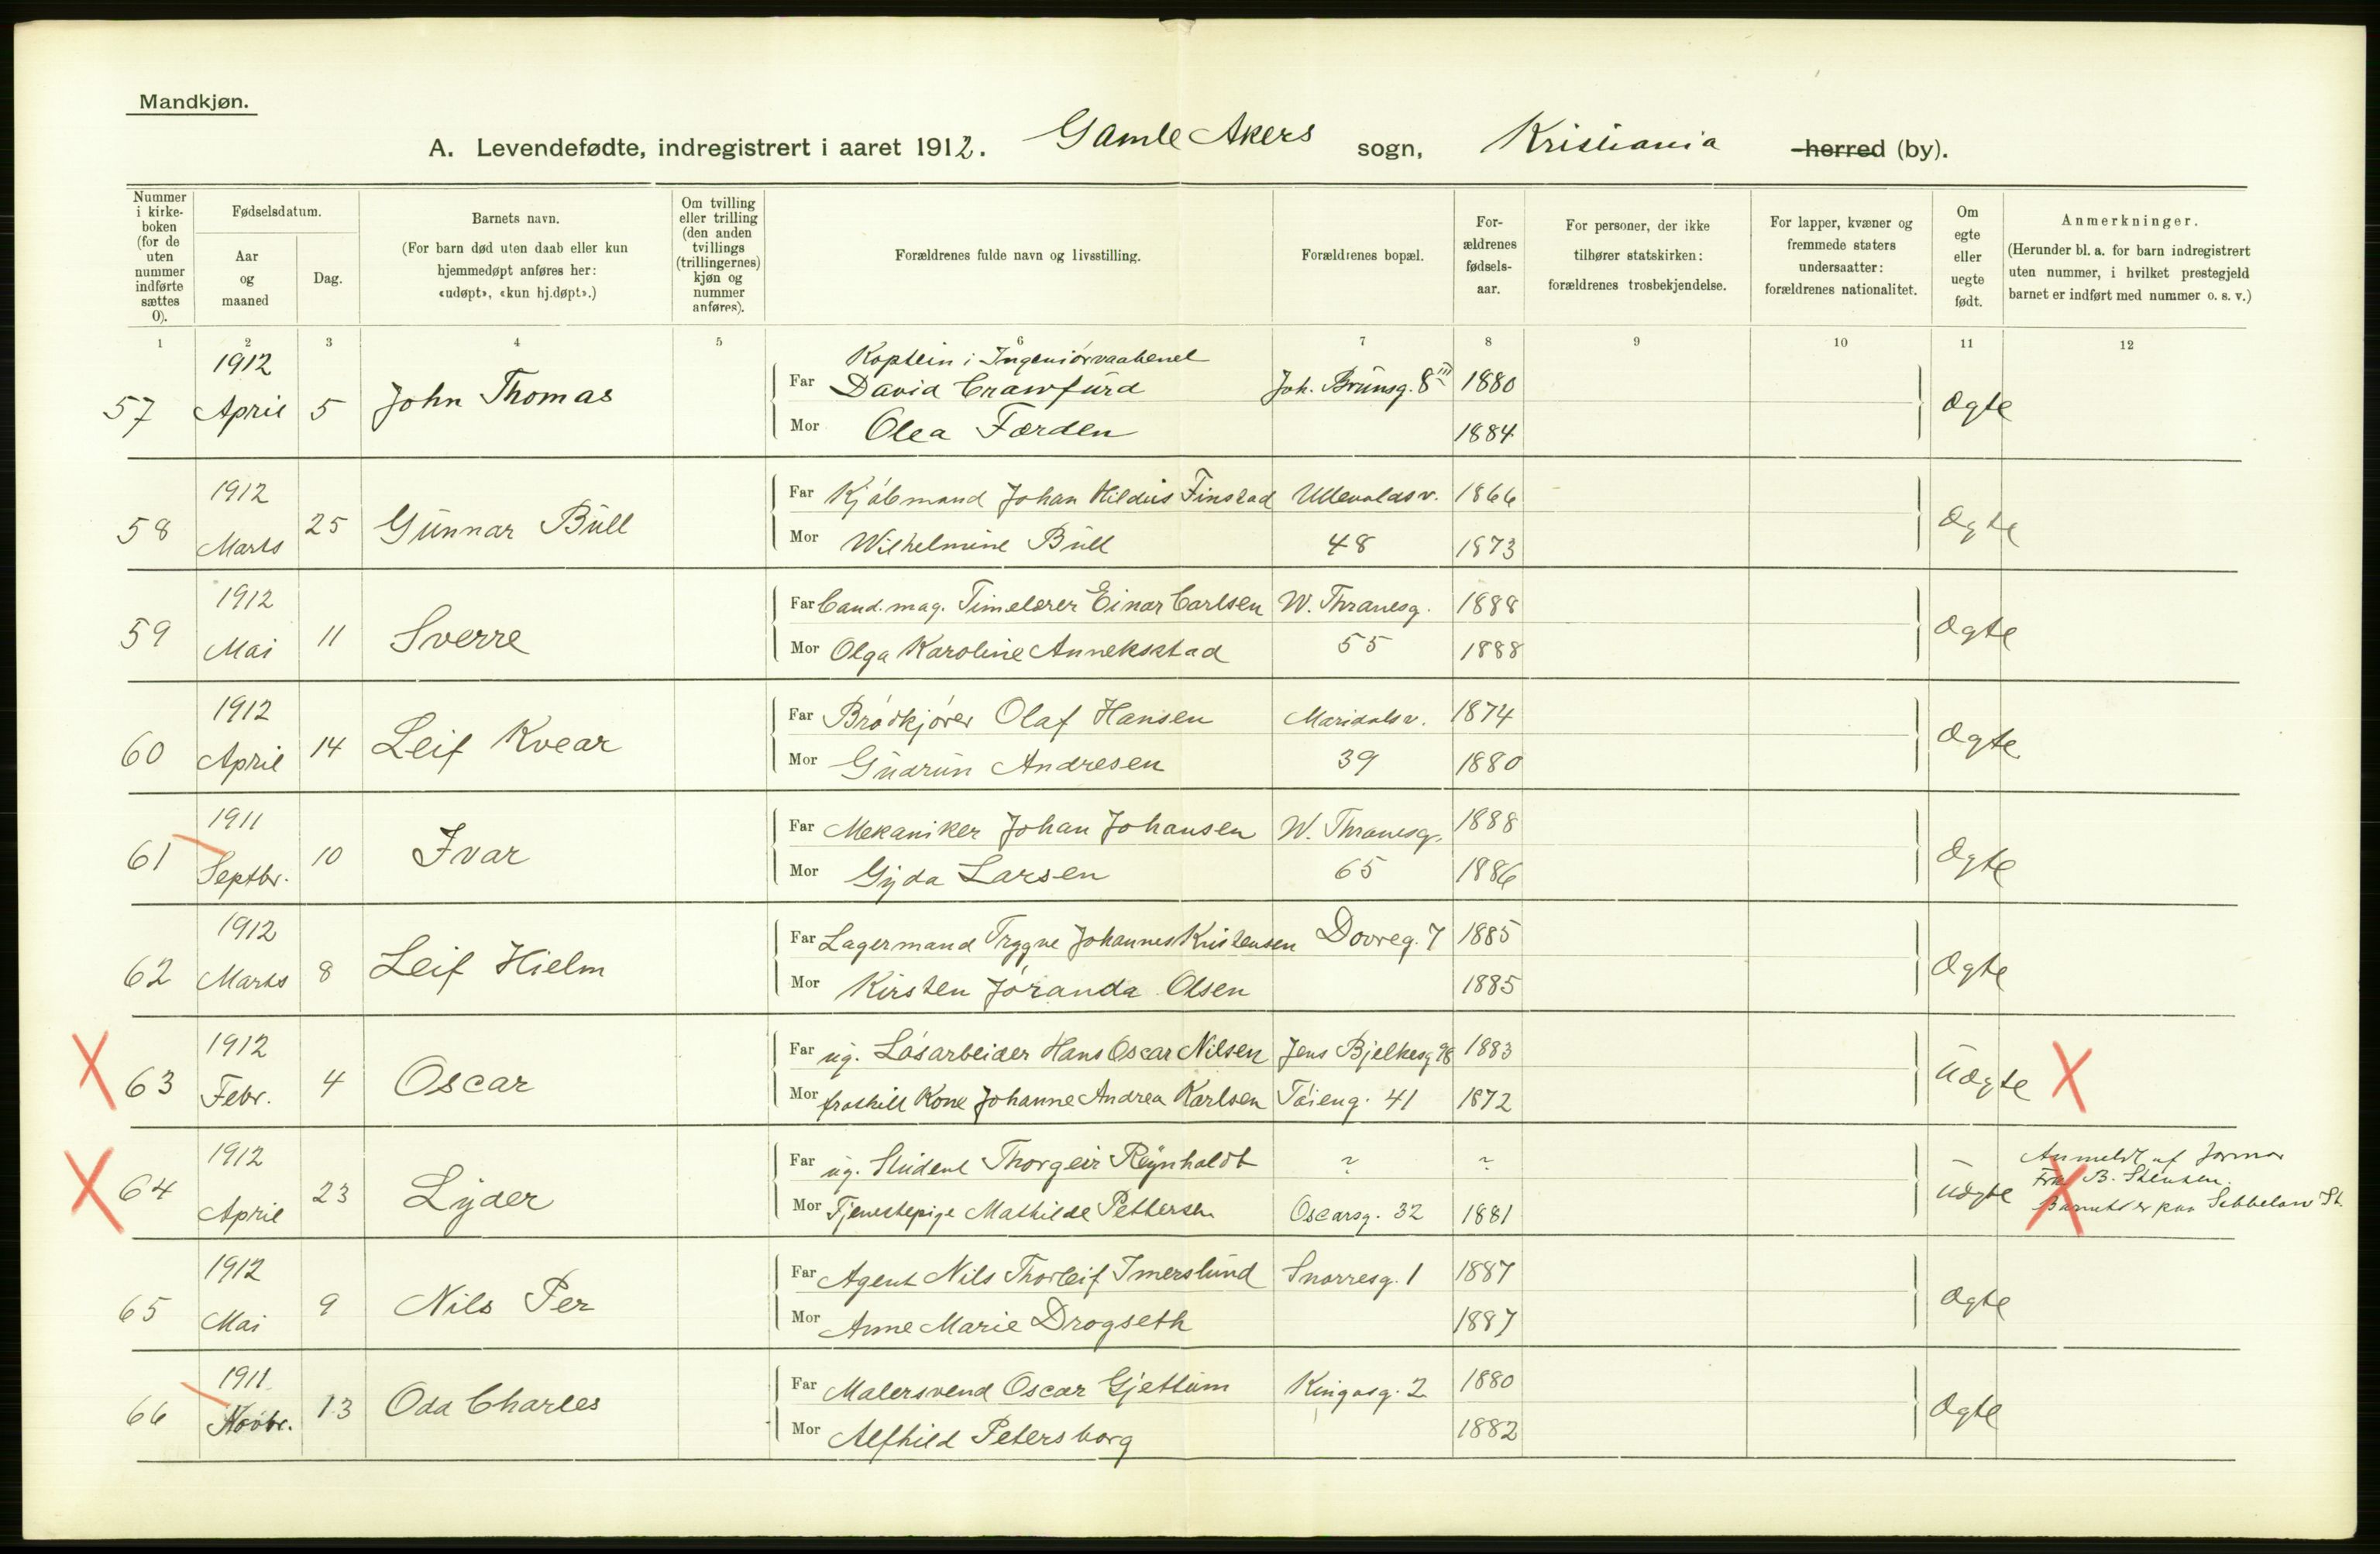 Mandkjøn.
A. Levendefødte, indregistrert i aaret 1912. Gamle Akers sogn, Kristiania herred (by).
Nummer i kirke-boken (for de uten nummer indførte sættes 0).
Fødselsdatum.
Aar og maaned
Dag.
Barnets navn.
(For barn død uten daab eller kun hjemmedøpt anføres her: «udøpt», «kun hj.døpt».)
Om tvilling eller trilling (den anden tvillings (trillingernes) kjøn og nummer anføres).
Forældrenes fulde navn og livsstilling.
Forældrenes bopæl.
For-ældrenes fødsels-aar.
For personer, der ikke tilhører statskirken: forældrenes trosbekjendelse.
For lapper, kvæner og fremmede staters undersaatter: forældrenes nationalitet.
Om egte eller uegte født.
Anmerkninger.
(Herunder bl. a. for barn indregistrert uten nummer, i hvilket prestegjeld barnet er indført med nummer o. s. v.)
1 2 3 4 5 6 7 8 9 10 11 12
57 1912 April 5 John Thomas
Kaptein i Ingeniørvaabenet
Far David Crawfurd Joh. Brunsg. 8 III 1880
Mor Olea Færden 1884
Ægte
58 1912 Marts 25 Gunnar Bull
Far Kjøbmand Johan Hildus Finstad Ullevoldsv. 1866
Mor Wilhelmine Bull 48 1873
Ægte
59 1912 Mai 11 Sverre
Far Cand. mag. Timelærer Einar Carlsen W. Thranesg. 1888
Mor Olga Karoline Annekstad 55 1888
Ægte
60 1912 April 14 Leif Kvear
Far Brødkjører Olaf Hansen Maridalsv. 1874
Mor Gudrun Andresen 39 1880
Ægte
61 1911 Septbr. 10 Ivar
Far Mekaniker Johan Johansen W. Thranesg. 1888
Mor Gyda Larsen 65 1886
Ægte
62 1912 Marts 8 Leif Hielm
Far Lagermand Trygve Johannes Kristensen Dovreg. 7 1885
Mor Kirsten Jóranda Olsen 1885
Ægte
63 1912 Febr. 4 Oscar
Far ug. Løsarbeider Hans Oscar Nilsen Jens Bjelkesg 98 1883
Mor fraskilt Kone Johanne Andrea Karlsen Tøieng. 41 1872
Uægte
64 1912 April 23 Lyder
Far ug. Student Thorgeir Reynholdt ~ ~
Mor Tjenestepige Mathilde Pettersen Oscarsg. 32 1881
Uægte
Anmeldt af Jormor
B. Stensen.
Barnet er paa St.
65 1912 Mai 9 Nils Per
Far Agent Nils Thorleif Imerslund Snorresg. 1 1887
Mor Anne Marie Drogseth 1887
Ægte
66 1911 Novbr. 13 Odd Charles
Far Malersvend Oscar Gjettum Kingosg. 2 1880
Mor Alfhild Petersborg 1882
Ægte